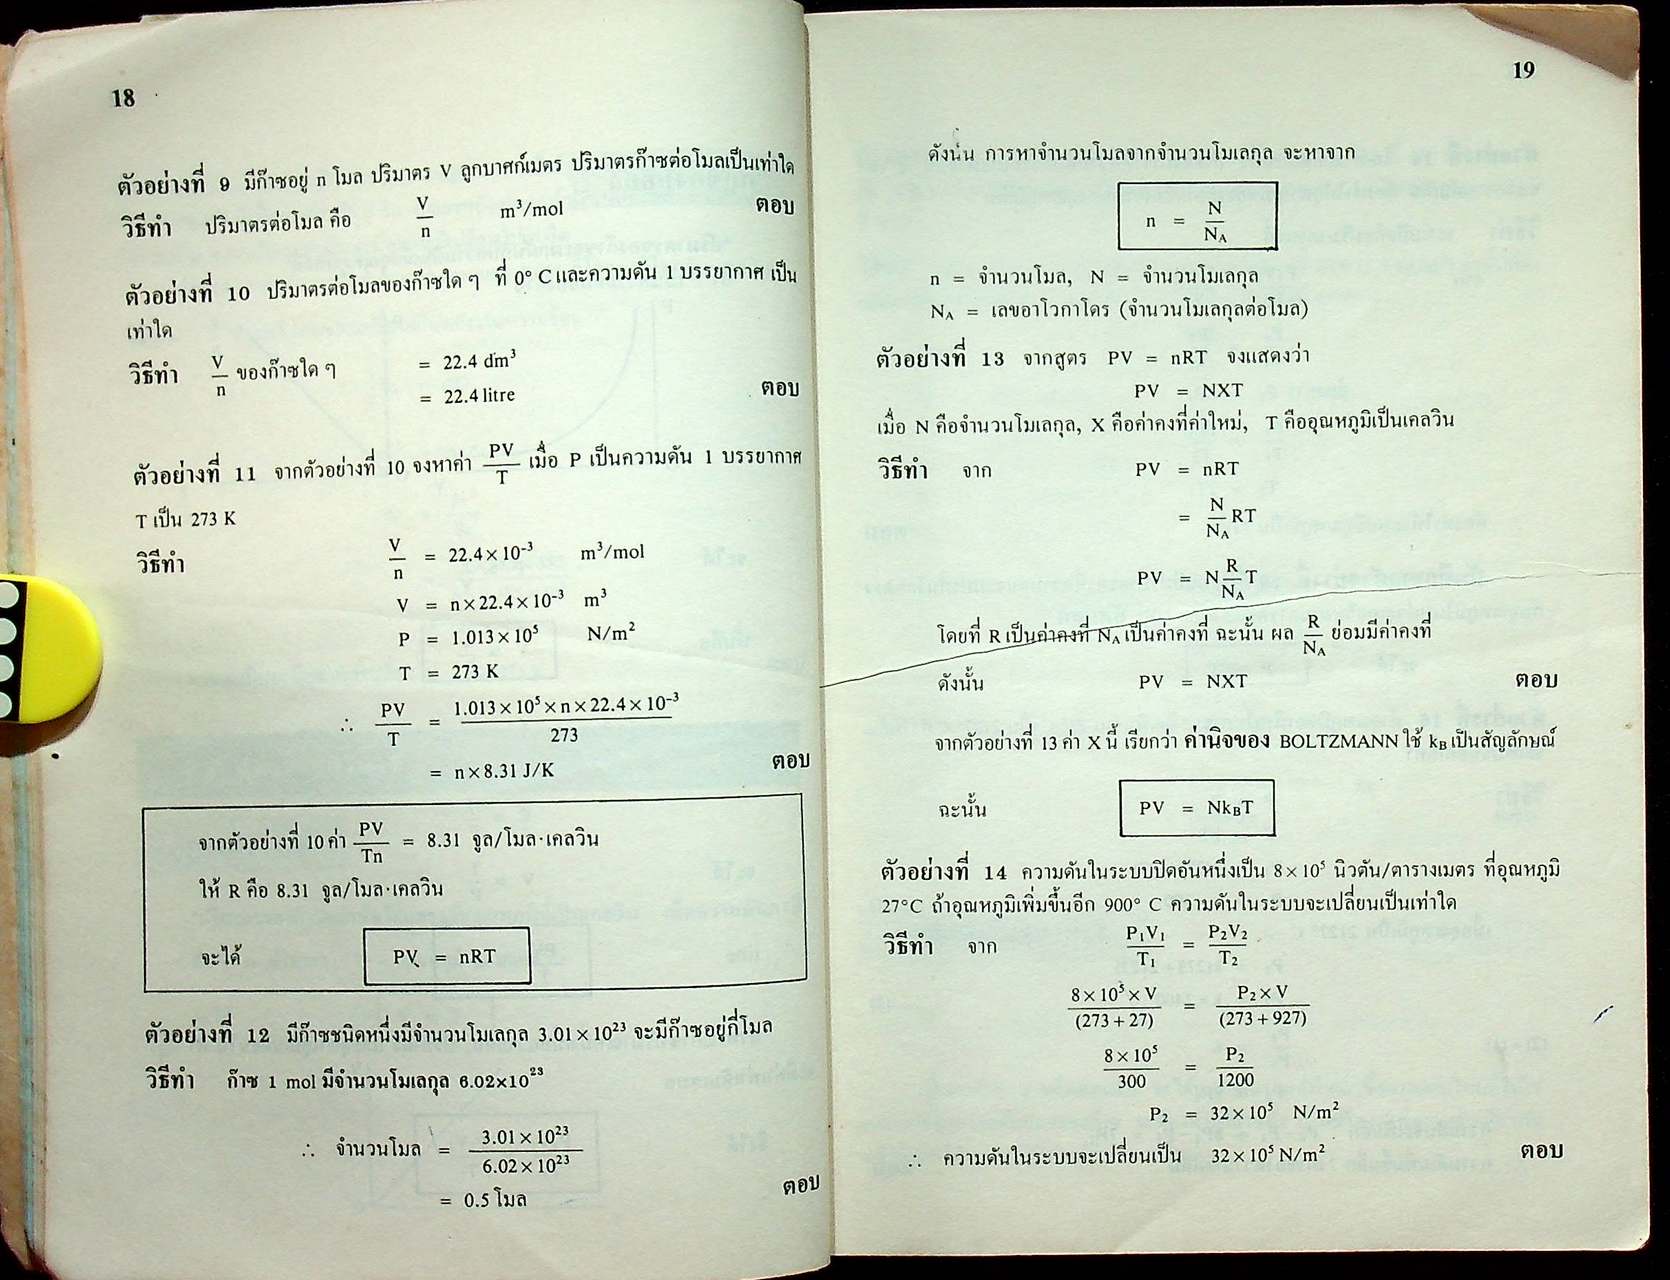 18
ตัวอย่างที่ 9 มีก๊าซอยู่ n โมล ปริมาตร V ลูกบาศก์เมตร ปริมาตรก๊าซต่อโมลเป็นเท่าใด
วิธีทำ ปริมาตรต่อโมล คือ V/n m³/mol ตอบ
ตัวอย่างที่ 10 ปริมาตรต่อโมลของก๊าซใด ๆ ที่ 0° C และความดัน 1 บรรยากาศ เป็น
เท่าใด
วิธีทำ V/n ของก๊าซใด ๆ = 22.4 dm³
= 22.4 litre ตอบ
ตัวอย่างที่ 11 จากตัวอย่างที่ 10 จงหาค่า PV/T เมื่อ P เป็นความดัน 1 บรรยากาศ
T เป็น 273 K
วิธีทำ V/n = 22.4×10⁻³ m³/mol
V = n×22.4×10⁻³ m³
P = 1.013×10⁵ N/m²
T = 273 K
∴ PV/T = 1.013×10⁵×n×22.4×10⁻³/273
= n×8.31 J/K ตอบ
จากตัวอย่างที่ 10 ค่า PV/Tn = 8.31 จูล/โมล·เคลวิน
ให้ R คือ 8.31 จูล/โมล·เคลวิน
จะได้ PV = nRT
ตัวอย่างที่ 12 มีก๊าซชนิดหนึ่งมีจำนวนโมเลกุล 3.01×10²³ จะมีก๊าซอยู่กี่โมล
วิธีทำ ก๊าซ 1 mol มีจำนวนโมเลกุล 6.02x10²³
∴ จำนวนโมล = 3.01×10²³/6.02×10²³
= 0.5 โมล ตอบ
19
ดังนั้น การหาจำนวนโมลจากจำนวนโมเลกุล จะหาจาก
n = N/N_A
n = จำนวนโมล, N = จำนวนโมเลกุล
N_A = เลขอาโวกาโดร (จำนวนโมเลกุลต่อโมล)
ตัวอย่างที่ 13 จากสูตร PV = nRT จงแสดงว่า
PV = NXT
เมื่อ N คือจำนวนโมเลกุล, X คือค่าคงที่ค่าใหม่, T คืออุณหภูมิเป็นเคลวิน
วิธีทำ จาก PV = nRT
= N/N_A RT
PV = N R/N_A T
โดยที่ R เป็นค่าคงที่ N_A เป็นค่าคงที่ ฉะนั้น ผล R/N_A ย่อมมีค่าคงที่
ดังนั้น PV = NXT ตอบ
จากตัวอย่างที่ 13 ค่า X นี้ เรียกว่า ค่านิจของ BOLTZMANN ใช้ k_B เป็นสัญลักษณ์
ฉะนั้น PV = Nk_BT
ตัวอย่างที่ 14 ความดันในระบบปิดอันหนึ่งเป็น 8×10⁵ นิวตัน/ตารางเมตร ที่อุณหภูมิ
27°C ถ้าอุณหภูมิเพิ่มขึ้นอีก 900° C ความดันในระบบจะเปลี่ยนเป็นเท่าใด
วิธีทำ จาก P₁V₁/T₁ = P₂V₂/T₂
8×10⁵×V/(273+27) = P₂×V/(273+927)
8×10⁵/300 = P₂/1200
P₂ = 32×10⁵ N/m²
∴ ความดันในระบบจะเปลี่ยนเป็น 32×10⁵ N/m² ตอบ